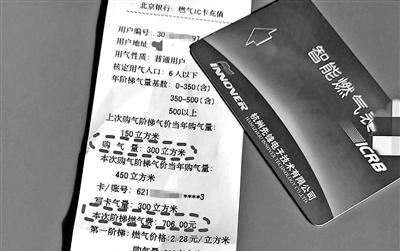 北京银行:燃气IC卡充值
用户编号:30 97
用户地址:
用气性质:普通用户
核定用气人口:6人以下
年阶梯气量基数:0-350(含)
350-500(含)
500以上
上次购气阶梯气价当年购气量:
150立方米
购 气 量:300立方米
本次购气阶梯气价当年购气量:
450立方米
卡/账号:621 ****3
写卡气量:300立方米
本次阶梯燃气费:706.00元
第一阶梯:燃气价格:2.28元/立方米
购气
智能燃气卡
INNOVER
杭州先锋电子技术有限公司
HANGZHOU INNOVER TECHNOLOGY CO.,LTD
ICRB